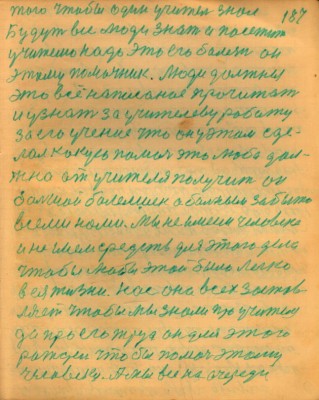 187
того чтобы один учител знал
Будут все люди знат и посетит
учителю надо это его болет он
этому помочник. Люди должны
это всё написаное прочитат
и узнат за учителеву работу
за его учение что он у этом сде-
лал какую помоч это люба дол-
жно от учителя получит он
больной забыто
всеми нами. Мы не имеем человека
и не имем средств для этого дела
чтобы было легко
в жизни. Нас она всех застов-
ляет чтобы мы знали про учителя
да про его труд он для этого
рожден чтобы помоч этому
человеку. А мы все на очереди